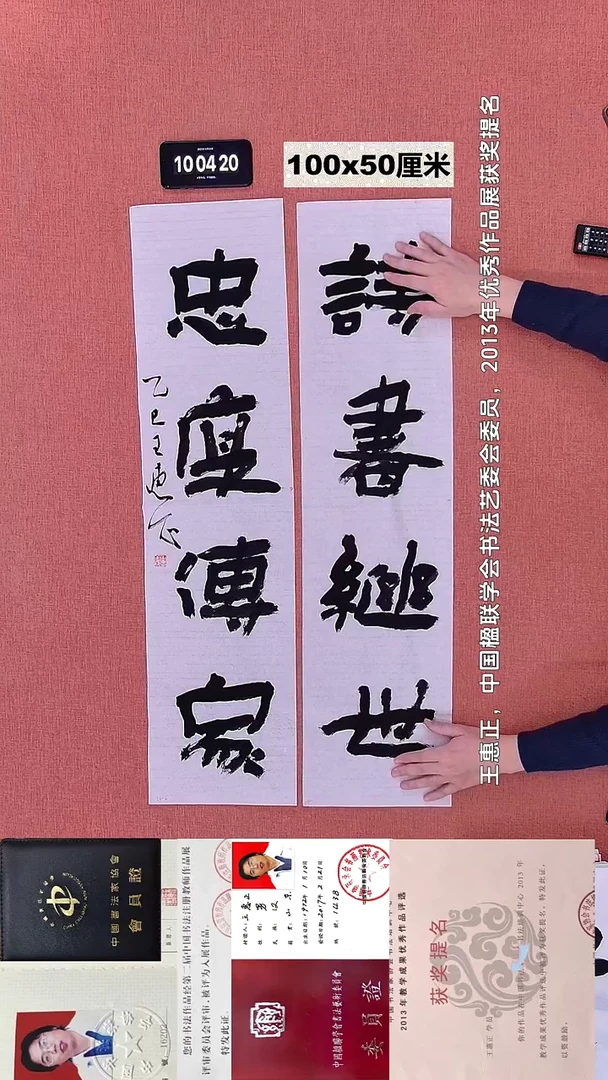 10 04 20
100x50厘米
詩書繼世
忠厚傳家
乙巳王惠正
王惠正，中国楹联学会书法艺委会委员，2013年优秀作品展获奖提名
中國書法家協會
會員證
您的书法作品经第二届中国书法注册教师作品展
评审委员会评审，被评为入展作品。
特发此证。
中國楹聯學會書法藝術委員會
委員證
2013年教学成果优秀作品评选
获奖提名
王惠正 学员
以资鼓励。